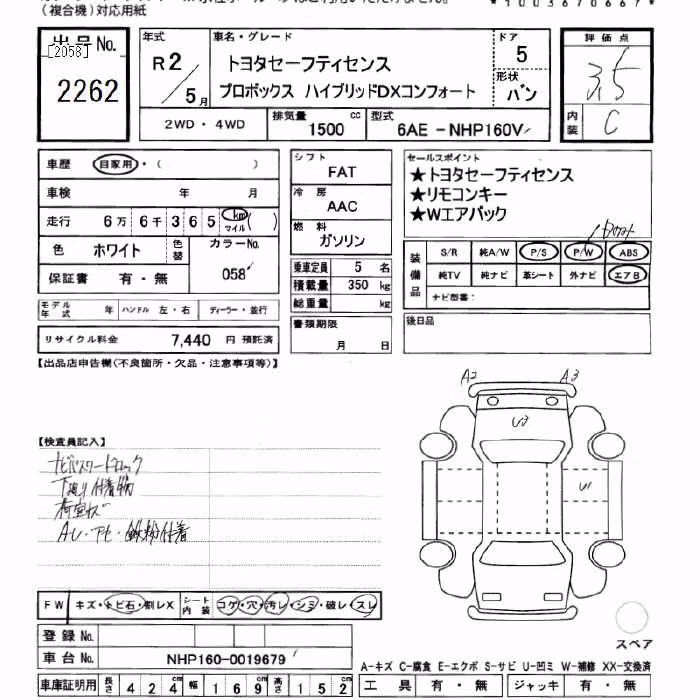 （複合機）対応用紙
*1003670667*
出品No.
[2058]
2262
年式
R2/5月
車名・グレード
トヨタセーフティセンス
プロボックス ハイブリッドDXコンフォート
ドア
5
形状
バン
評価点
3.5
内装
C
2WD・4WD
排気量
1500
cc
型式
6AE-NHP160V
車歴 自家用・( )
車検 年 月
走行 6万 6千 3 6 5 km マイル ( )
色 ホワイト 色替 カラーNo.
058
保証書 有・無
モデル年式 年 ハンドル 左・右 ディーラー・並行
リサイクル料金 7,440 円 預託済
シフト
FAT
冷房
AAC
燃料
ガソリン
乗車定員 5 名
積載量 350 kg
総重量 kg
書類期限
月 日
セールスポイント
★トヨタセーフティセンス
★リモコンキー
★Wエアバック
装備品
S/R 純A/W P/S P/W ABS
純TV 純ナビ 革シート 外ナビ エアB
ナビ型番：
後日品
【出品店申告欄(不良箇所・欠品・注意事項等)】
【検査員記入】
ナビパスワードロック
下廻り付着物
荷室キズ
AU・アセ・鉄粉付着
A2
A3
U3
U1
FW キズ・トビ石・割レX シート内装 コゲ・穴・汚レ・シミ・破レ・スレ
登録No.
車台No. NHP160-0019679
スペア
A-キズ C-腐食 E-エクボ S-サビ U-凹ミ W-補修 XX-交換済
車庫証明用 長さ 4 2 4 cm 幅 1 6 9 cm 高さ 1 5 2 cm
工具 有・無 ジャッキ 有・無